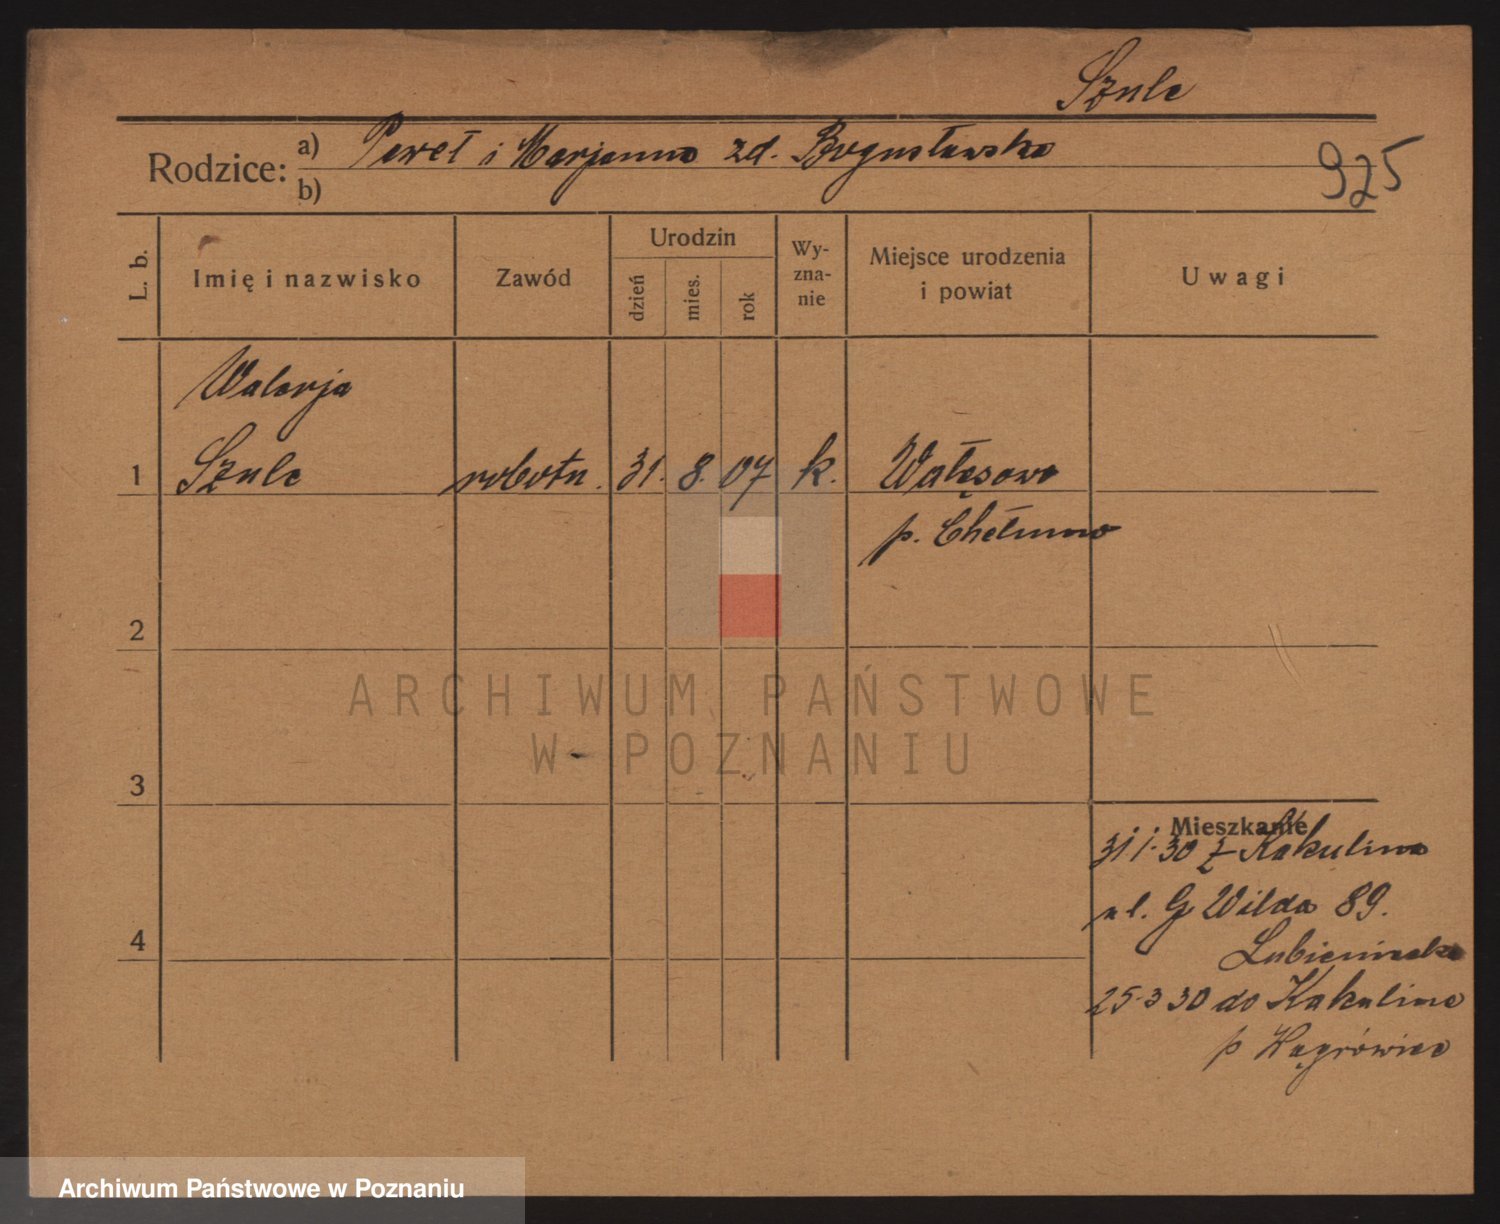 Szulc
Rodzice: a) Paweł i Marjanna zd. Bogusławska
b)
925
L. b.
Imię i nazwisko
Zawód
Urodzin
dzień
mies.
rok
Wy-
zna-
nie
Miejsce urodzenia
i powiat
Uwagi
Walerja
1 Szulc robotn. 31. 8. 07 k. Wałęsowo
p. Chełmno
2
ARCHIWUM PAŃSTWOWE
W POZNANIU
3
Mieszkanie
31 1. 30 z Kakulina
ul. G Wilda 89.
4
25 3 30 do Kakulina
p Wągrówiec
Archiwum Państwowe w Poznaniu